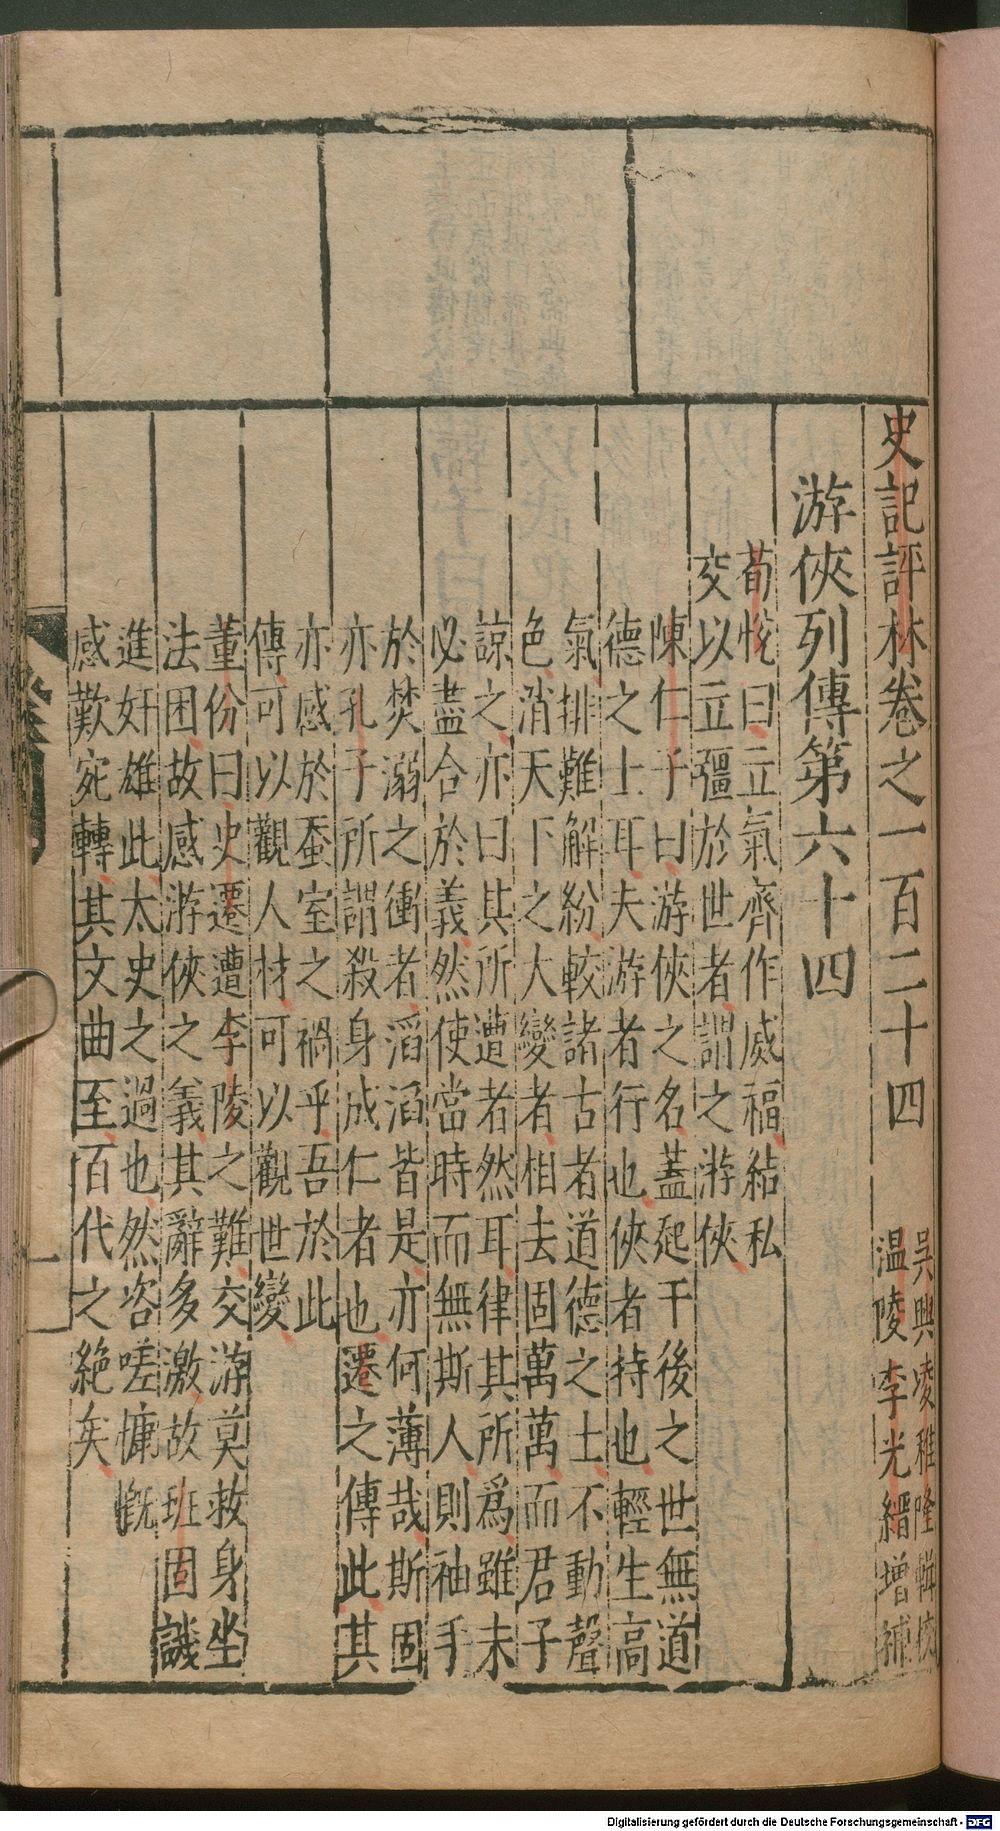 史記評林卷之一百二十四
吳興凌稚隆輯校
溫陵李光縉增補
游俠列傳第六十四
荀悅曰立氣齊作威福結私
交以立彊於世者謂之游俠
陳仁子曰游俠之名蓋起于後之世無道
德之士耳夫游者行也俠者持也輕生高
氣排難解紛較諸古者道德之士不動聲
色消天下之大變者相去固萬萬而君子
諒之亦曰其所遭者然耳律其所爲雖未
必盡合於義然使當時而無斯人則袖手
於焚溺之衝者滔滔皆是亦何薄哉斯固
亦孔子所謂殺身成仁者也遷之傳此其
亦感於蚕室之禍乎吾於此
傳可以觀人材可以觀世變
董份曰史遷遭李陵之難交游莫救身坐
法困故感游俠之義其辭多激故班固譏
進奸雄此太史之過也然咨嗟慷慨
感歎宛轉其文曲至百代之絕矣
一
Digitalisierung gefördert durch die Deutsche Forschungsgemeinschaft - DFG